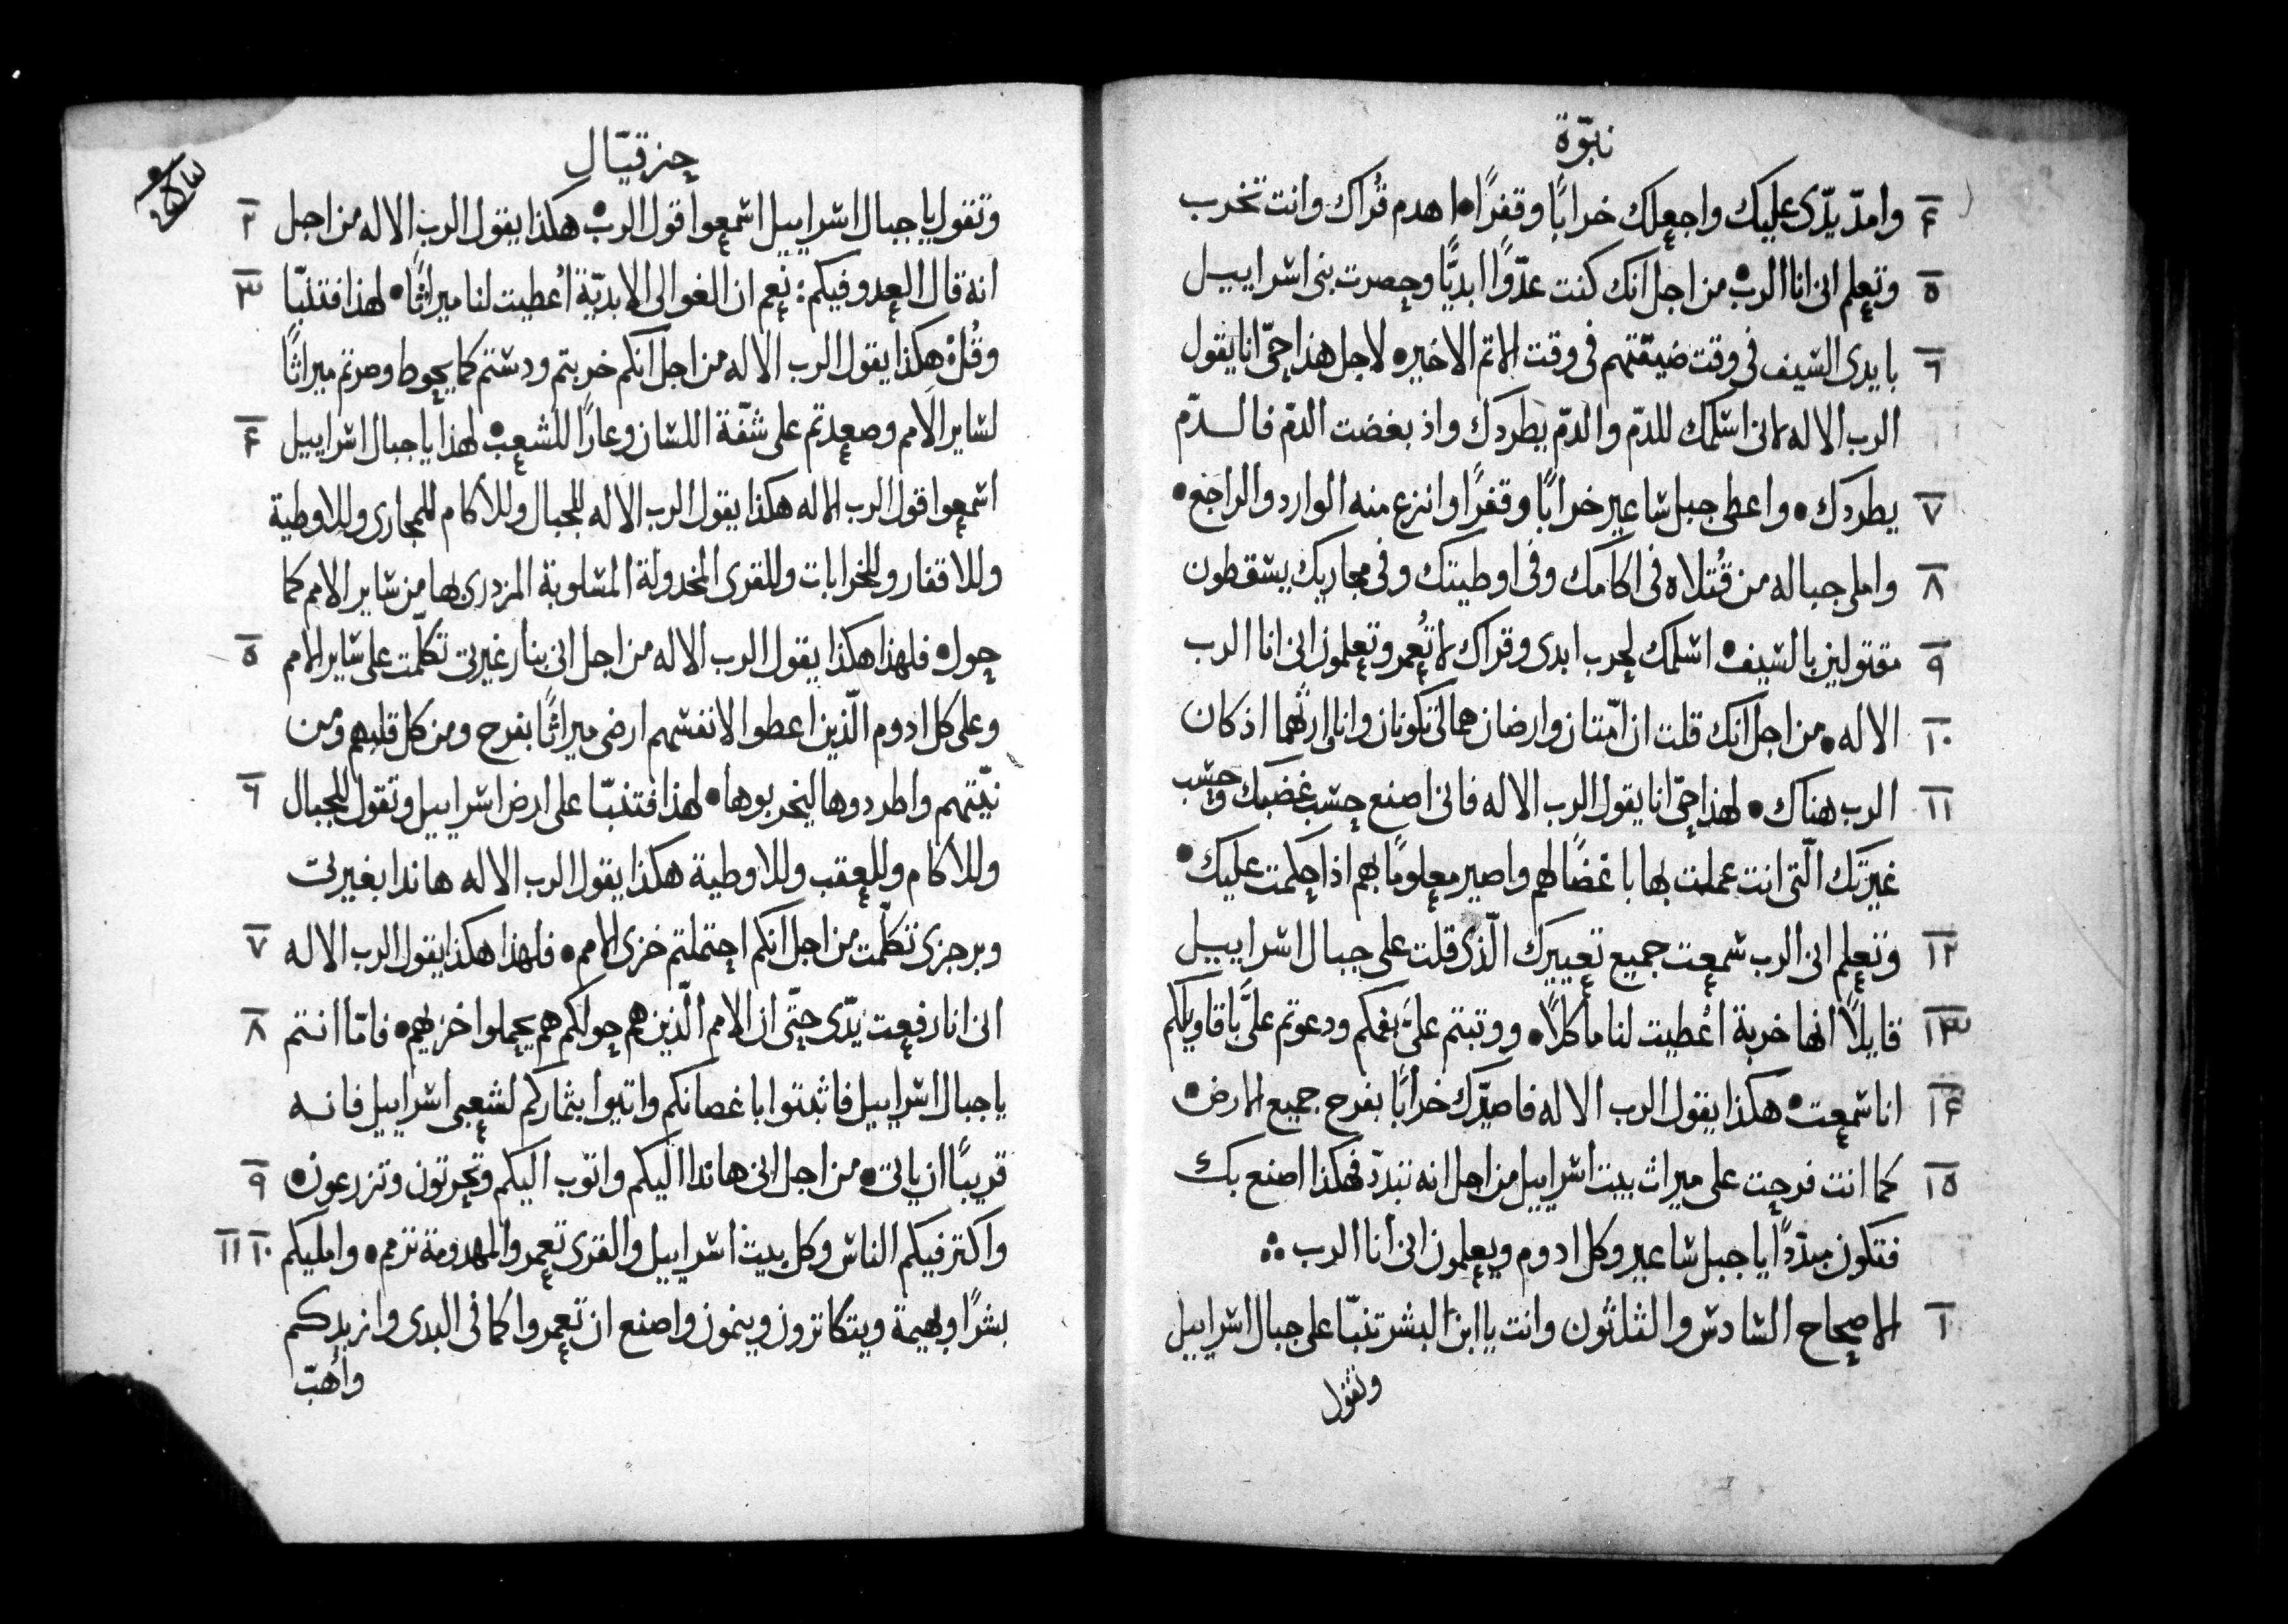 نبوّة
٤ وامدّ يدّى عليك واجعلك خرابًا وقفرًا• اهدم قُراك وانت تخرب
٥ وتعلم انى انا الرب• من اجل انك كنت عدّوًا ابديًّا وحصرت بنى اسراييل
٦ بايدى السيف فى وقت ضيقتهم فى وقت الاتم الاخير• لاجل هذا حىّ انا يقول
الرب الاله لانى اسلمك للدّم والدّم يطردك واذ بغضت الدّم فالدّم
٧ يطردك• واعطى جبل ساعير خرابًا وقفرًا وانزع منه الوارد والراجع•
٨ واملى جباله من قُتلاه فى اكامك وفى اوطيتك وفى مجاريك يسقطون
٩ مقتولين بالسيف• اسلمك لحرب ابدى وقراك لا تُعمر وتعلمون انى انا الرب
١٠ الاله• من اجل انك قلت ان امّتان وارضان هما لى تكونان وانا ارثهما اذ كان
١١ الرب هناك• لهذا حىّ انا يقول الرب الاله فانى اصنع حسب غضبك وحسب
غيرتك الّتى انت عملت بها باغضًا لهم واصير معلومًا بهم اذا حكمت عليك•
١٢ وتعلم انى الرب سمعت جميع تعييرك الّذى قلت على جبال اسراييل
١٣ قايلًا انها خربة اُعطيت لنا ماكلًا• ووتبتم علىّ بفمكم ودعوتم علىَّ باقاويلكم
١٤ انا سمعت• هكذا يقول الرب الاله فاصيّرك خرابًا بفرح جميع الارض•
١٥ كما انت فرحت على ميراث بيت اسراييل من اجل انه تبدّد فهكذا اصنع بك
فتكون مبدّدًا يا جبل ساعير وكل ادوم ويعلمون انى انا الرب
١ الاصحاح السادس والثلثون وانت يا ابن البشر تنبّا على جبال اسراييل
وتقول
حزقيّال
٢ وتقول يا جبال اسراييل اسمعوا قول الرب• هكذا يقول الرب الاله من اجل
٣ انه قال العدو فيكم: نعم ان الغوالى الابديّة اُعطيت لنا ميراثًا• لهذا فتنبّا
وقُلْ هكذا يقول الرب الاله من اجل انكم خربتم ودستم كما يحوط وصرتم ميراثًا
٤ لساير الامم وصعدتم على شفّة اللسان وعارًا للشعب• لهذا يا جبال اسراييل
اسمعوا قول الرب الاله هكذا يقول الرب الاله للجبال وللاكام للمجارى وللاوطية
وللاقفار وللخرابات وللقرى المخدولة المسلوبة المزدرى بها من ساير الامم كما
٥ حول• فلهذا هكذا يقول الرب الاله من اجل انى بنار غيرتى تكلّمت على ساير الامم
وعلى كل ادوم الّذين اعطوا لانفسهم ارضى ميراثًا بفرح ومن كل قلبهم ومن
٦ نيّتهم واطردوها ليخربوها• لهذا فتنبّا على ارض اسراييل وتقول للجبال
وللاكام وللعقب وللاوطية هكذا يقول الرب الاله هاندا بغيرتى
٧ وبرجزى تكلّمت من اجل انكم احتملتم خزى الامم• فلهذا هكذا يقول الرب الاله
٨ انى انا رفعت يدّى حتّى ان الامم الّذين هم حولكم هم يحملوا خزيهم• فامّا انتم
يا جبال اسراييل فاثبتوا باغصانكم واتيوا بثماركم لشعبى اسراييل فانه
٩ قريبًا ان ياتى• من اجل انى هاندا اليكم واتوب اليكم وتحرتون وتزرعون•
١٠ ١١ واكتر فيكم الناس وكل بيت اسراييل والقرى تعمر والمهدومة ترمم• وامليكم
بشرًا وبهيمة ويتكاترون وينمون واصنع ان تعمروا كما فى البدى وازيدكم
وأهبّ